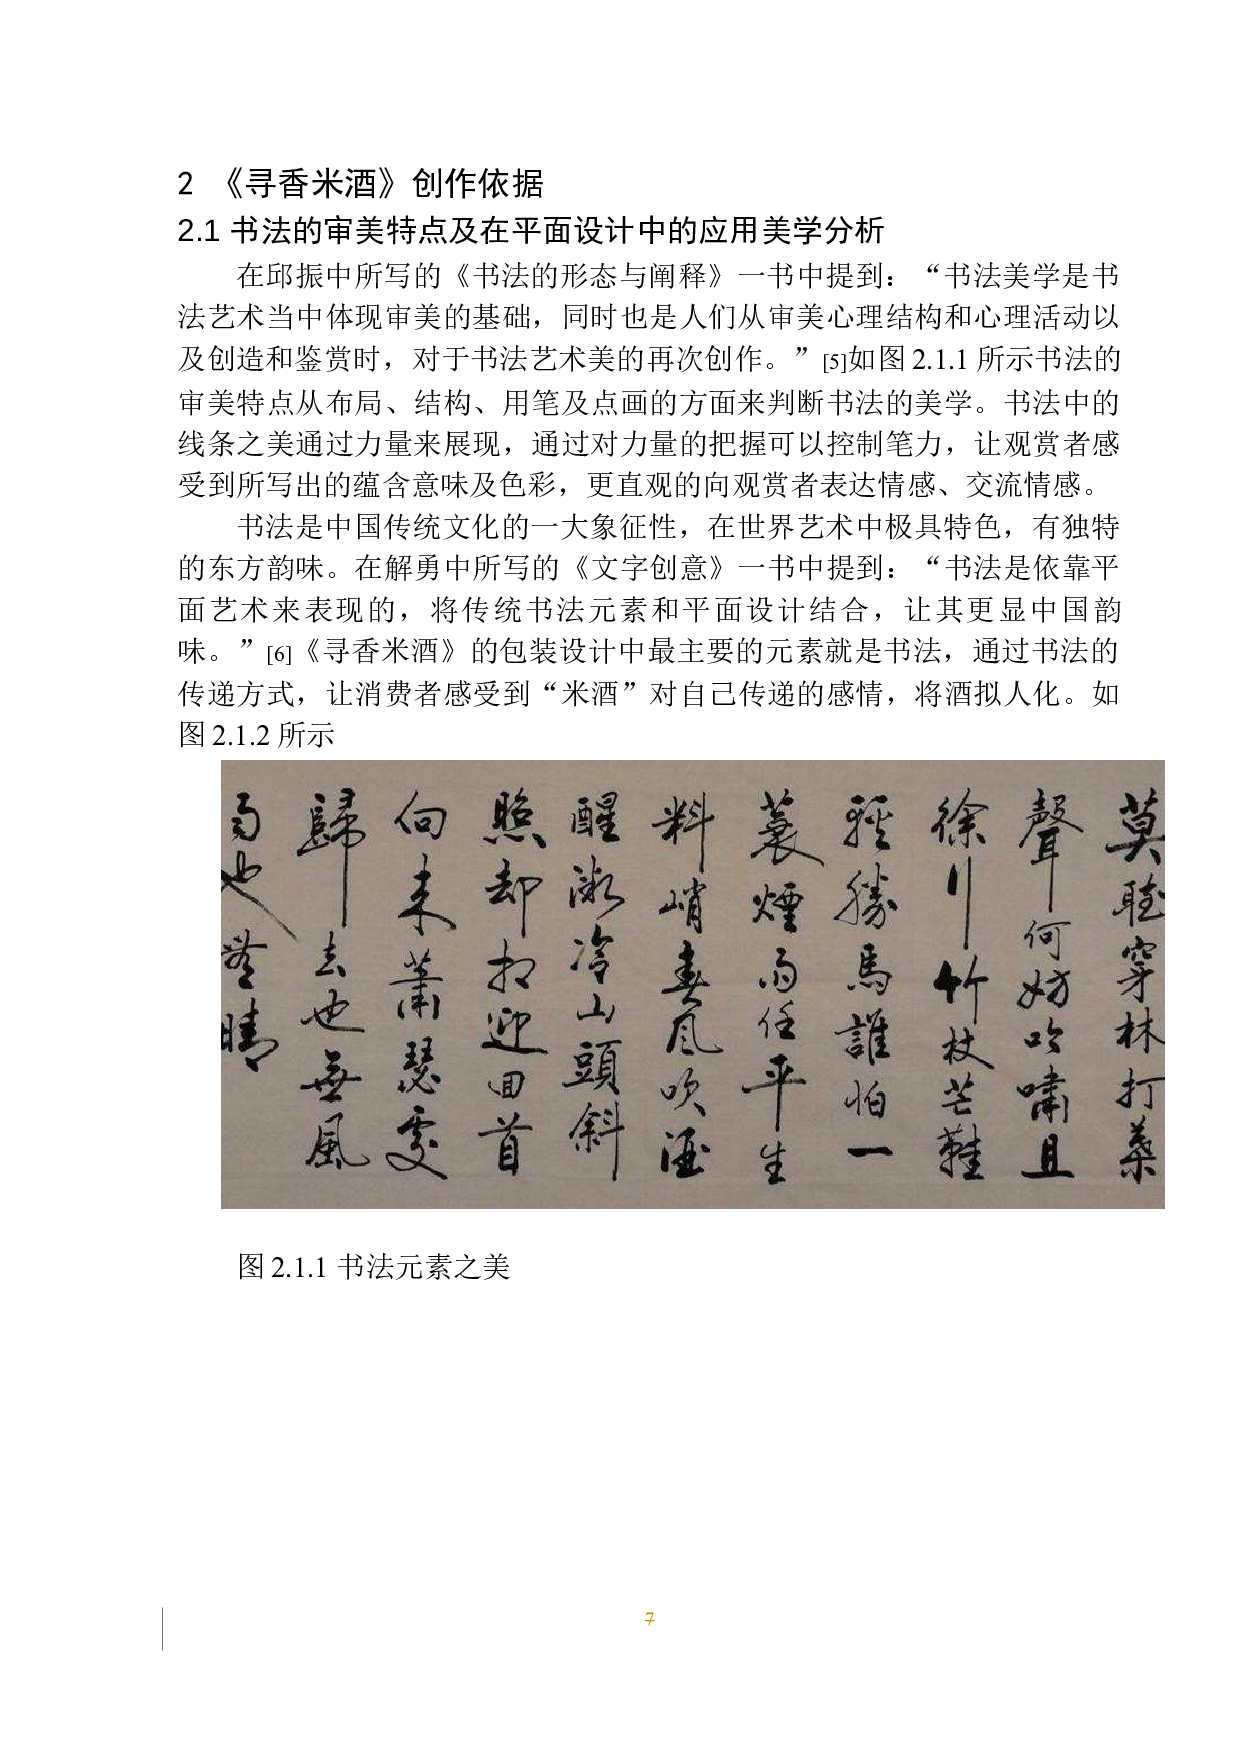 2 《寻香米酒》创作依据
2.1 书法的审美特点及在平面设计中的应用美学分析
在邱振中所写的《书法的形态与阐释》一书中提到：“书法美学是书
法艺术当中体现审美的基础，同时也是人们从审美心理结构和心理活动以
及创造和鉴赏时，对于书法艺术美的再次创作。”[5]如图 2.1.1 所示书法的
审美特点从布局、结构、用笔及点画的方面来判断书法的美学。书法中的
线条之美通过力量来展现，通过对力量的把握可以控制笔力，让观赏者感
受到所写出的蕴含意味及色彩，更直观的向观赏者表达情感、交流情感。
书法是中国传统文化的一大象征性，在世界艺术中极具特色，有独特
的东方韵味。在解勇中所写的《文字创意》一书中提到：“书法是依靠平
面艺术来表现的，将传统书法元素和平面设计结合，让其更显中国韵
味。”[6]《寻香米酒》的包装设计中最主要的元素就是书法，通过书法的
传递方式，让消费者感受到“米酒”对自己传递的感情，将酒拟人化。如
图 2.1.2 所示
莫聽穿林打葉
聲何妨吟嘯且
徐行竹杖芒鞋
輕勝馬誰怕一
蓑煙雨任平生
料峭春風吹酒
醒微冷山頭斜
照却相迎回首
向来蕭瑟處
歸去也無風
雨也無晴
图 2.1.1 书法元素之美
7